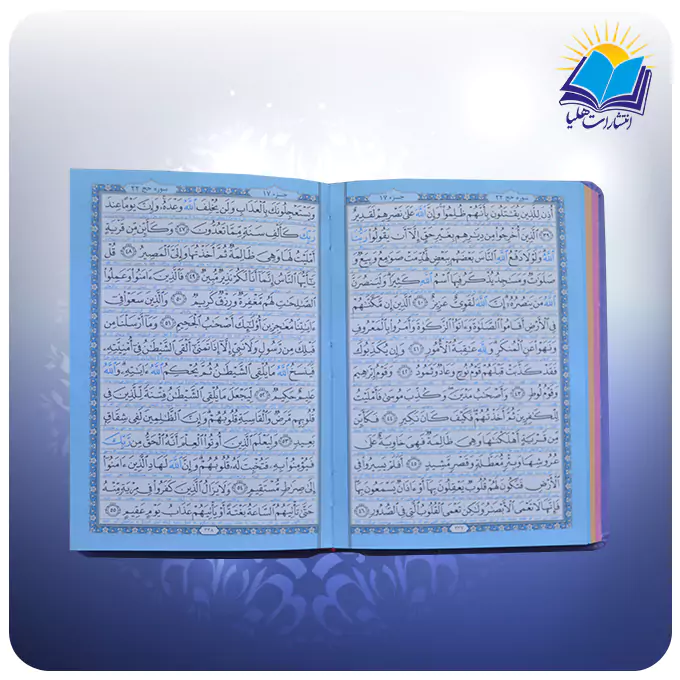 انتشارات هلیا
سوره حج ٢٢
جزء ١٧
أُذِنَ لِلَّذِينَ يُقَٰتَلُونَ بِأَنَّهُمْ ظُلِمُوا وَإِنَّ اللَّهَ عَلَىٰ نَصْرِهِمْ لَقَدِيرٌ
﴿٣٩﴾ الَّذِينَ أُخْرِجُوا مِن دِيَٰرِهِم بِغَيْرِ حَقٍّ إِلَّا أَن يَقُولُوا رَبُّنَا
اللَّهُ وَلَوْلَا دَفْعُ اللَّهِ النَّاسَ بَعْضَهُم بِبَعْضٍ لَّهُدِّمَتْ صَوَٰمِعُ وَبِيَعٌ وَ
صَلَوَٰتٌ وَمَسَٰجِدُ يُذْكَرُ فِيهَا اسْمُ اللَّهِ كَثِيرًا وَلَيَنصُرَنَّ
اللَّهُ مَن يَنصُرُهُ إِنَّ اللَّهَ لَقَوِيٌّ عَزِيزٌ ﴿٤٠﴾ الَّذِينَ إِن مَّكَّنَّٰهُمْ
فِي الْأَرْضِ أَقَامُوا الصَّلَوٰةَ وَءَاتَوُا الزَّكَوٰةَ وَأَمَرُوا بِالْمَعْرُوفِ
وَنَهَوْا عَنِ الْمُنكَرِ وَلِلَّهِ عَٰقِبَةُ الْأُمُورِ ﴿٤١﴾ وَإِن يُكَذِّبُوكَ
فَقَدْ كَذَّبَتْ قَبْلَهُمْ قَوْمُ نُوحٍ وَعَادٌ وَثَمُودُ ﴿٤٢﴾ وَقَوْمُ إِبْرَٰهِيمَ
وَقَوْمُ لُوطٍ ﴿٤٣﴾ وَأَصْحَٰبُ مَدْيَنَ وَكُذِّبَ مُوسَىٰ فَأَمْلَيْتُ
لِلْكَٰفِرِينَ ثُمَّ أَخَذْتُهُمْ فَكَيْفَ كَانَ نَكِيرِ ﴿٤٤﴾ فَكَأَيِّن
مِّن قَرْيَةٍ أَهْلَكْنَٰهَا وَهِيَ ظَالِمَةٌ فَهِيَ خَاوِيَةٌ عَلَىٰ
عُرُوشِهَا وَبِئْرٍ مُّعَطَّلَةٍ وَقَصْرٍ مَّشِيدٍ ﴿٤٥﴾ أَفَلَمْ يَسِيرُوا فِي
الْأَرْضِ فَتَكُونَ لَهُمْ قُلُوبٌ يَعْقِلُونَ بِهَا أَوْ ءَاذَانٌ يَسْمَعُونَ بِهَا
فَإِنَّهَا لَا تَعْمَى الْأَبْصَٰرُ وَلَٰكِن تَعْمَى الْقُلُوبُ الَّتِي فِي الصُّدُورِ ﴿٤٦﴾
٣٣٧
سوره حج ٢٢
جزء ١٧
وَيَسْتَعْجِلُونَكَ بِالْعَذَابِ وَلَن يُخْلِفَ اللَّهُ وَعْدَهُ وَإِنَّ يَوْمًا عِندَ
رَبِّكَ كَأَلْفِ سَنَةٍ مِّمَّا تَعُدُّونَ ﴿٤٧﴾ وَكَأَيِّن مِّن قَرْيَةٍ
أَمْلَيْتُ لَهَا وَهِيَ ظَالِمَةٌ ثُمَّ أَخَذْتُهَا وَإِلَيَّ الْمَصِيرُ ﴿٤٨﴾ قُلْ
يَٰأَيُّهَا النَّاسُ إِنَّمَا أَنَا لَكُمْ نَذِيرٌ مُّبِينٌ ﴿٤٩﴾ فَالَّذِينَ ءَامَنُوا وَعَمِلُوا
الصَّٰلِحَٰتِ لَهُم مَّغْفِرَةٌ وَرِزْقٌ كَرِيمٌ ﴿٥٠﴾ وَالَّذِينَ سَعَوْا فِي
ءَايَٰتِنَا مُعَٰجِزِينَ أُولَٰئِكَ أَصْحَٰبُ الْجَحِيمِ ﴿٥١﴾ وَمَا أَرْسَلْنَا مِن
قَبْلِكَ مِن رَّسُولٍ وَلَا نَبِيٍّ إِلَّا إِذَا تَمَنَّىٰ أَلْقَى الشَّيْطَٰنُ فِي أُمْنِيَّتِهِ
فَيَنسَخُ اللَّهُ مَا يُلْقِي الشَّيْطَٰنُ ثُمَّ يُحْكِمُ اللَّهُ ءَايَٰتِهِ وَاللَّهُ
عَلِيمٌ حَكِيمٌ ﴿٥٢﴾ لِّيَجْعَلَ مَا يُلْقِي الشَّيْطَٰنُ فِتْنَةً لِّلَّذِينَ فِي
قُلُوبِهِم مَّرَضٌ وَالْقَاسِيَةِ قُلُوبُهُمْ وَإِنَّ الظَّٰلِمِينَ لَفِي شِقَاقٍ
بَعِيدٍ ﴿٥٣﴾ وَلِيَعْلَمَ الَّذِينَ أُوتُوا الْعِلْمَ أَنَّهُ الْحَقُّ مِن رَّبِّكَ
فَيُؤْمِنُوا بِهِ فَتُخْبِتَ لَهُ قُلُوبُهُمْ وَإِنَّ اللَّهَ لَهَادِ الَّذِينَ ءَامَنُوا
إِلَىٰ صِرَٰطٍ مُّسْتَقِيمٍ ﴿٥٤﴾ وَلَا يَزَالُ الَّذِينَ كَفَرُوا فِي مِرْيَةٍ مِّنْهُ
حَتَّىٰ تَأْتِيَهُمُ السَّاعَةُ بَغْتَةً أَوْ يَأْتِيَهُمْ عَذَابُ يَوْمٍ عَقِيمٍ ﴿٥٥﴾
٣٣٨